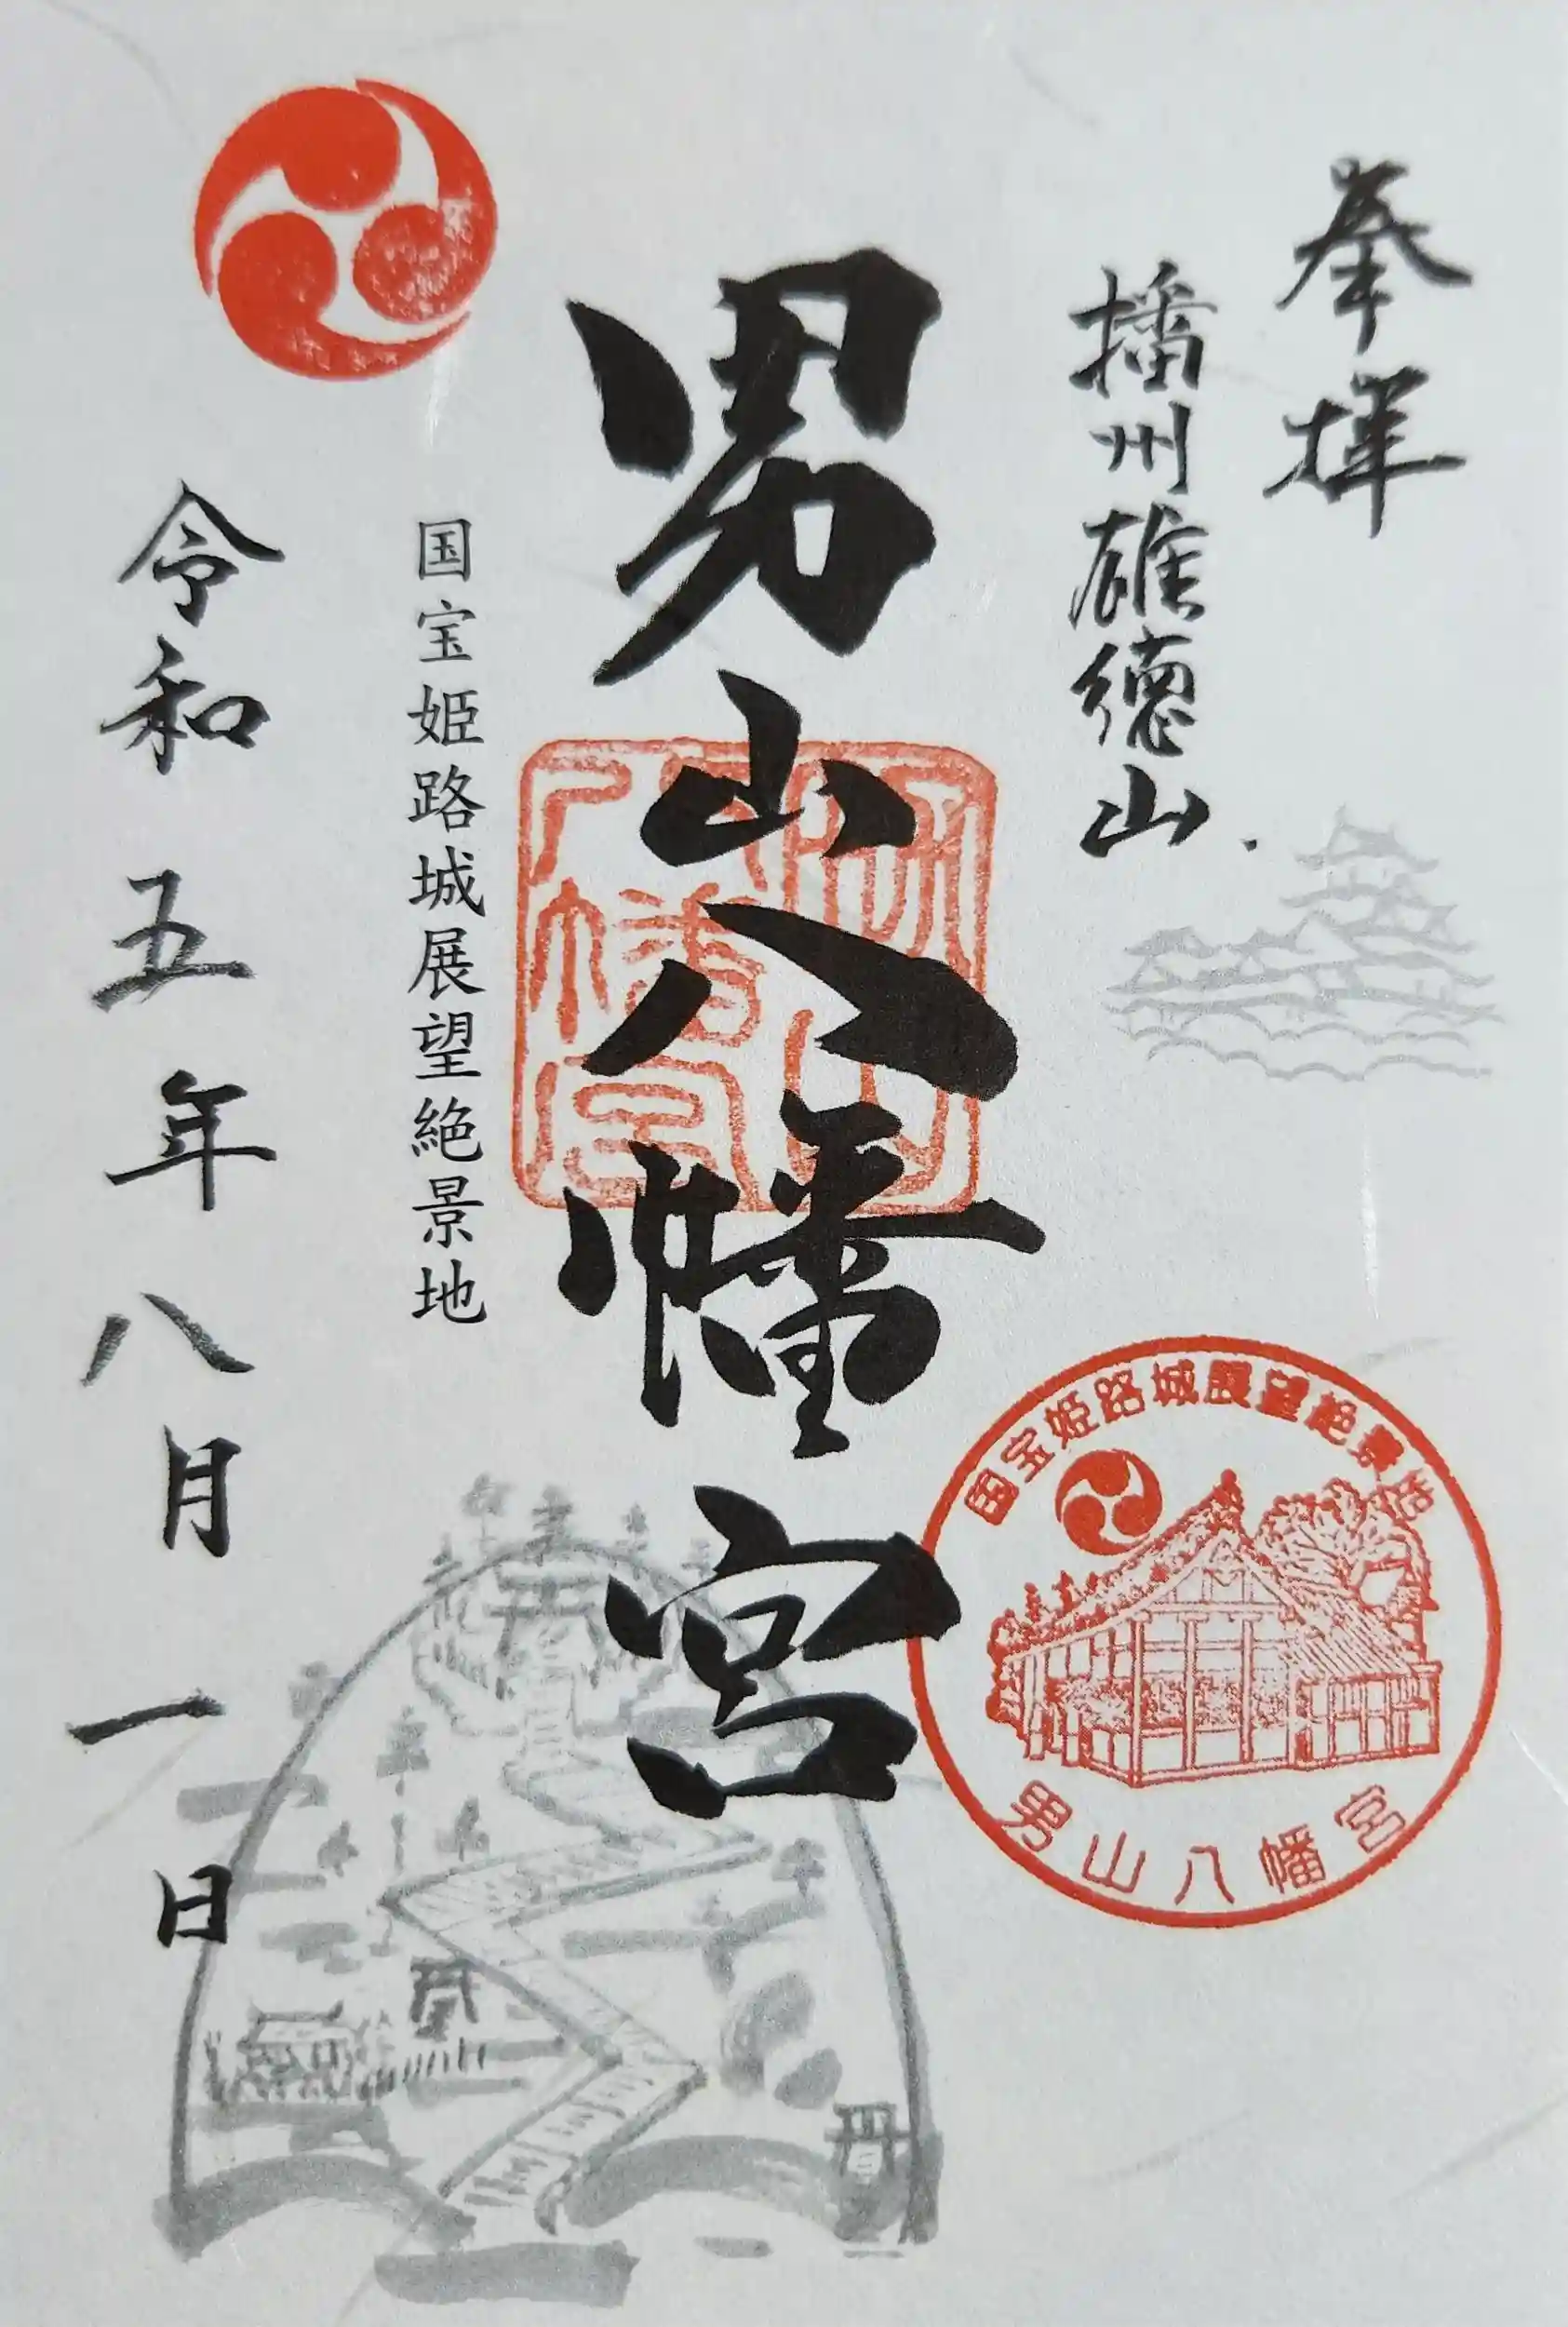 奉拝
播州雄徳山
男山八幡宮
男山八幡宮
国宝姫路城展望絶景地
令和五年八月一日
国宝姫路城展望絶景地
男山八幡宮